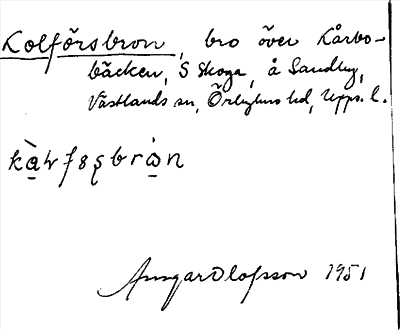 Kolförsbron, bro över Kårbo-
bäcken, S Skoga, å Sandby,
Västlands sn, Örbyhus hd, Upps. l.
Ansgar Olofsson 1951